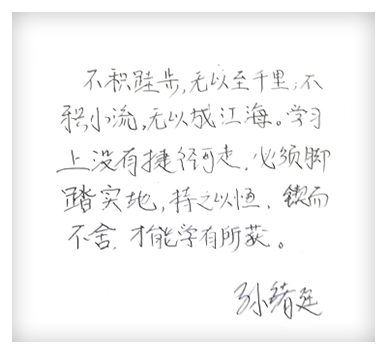 不积跬步,无以至千里;不
积小流,无以成江海。学习
上没有捷径可走,必须脚
踏实地,持之以恒,锲而
不舍,才能学有所获。
孙绪廷